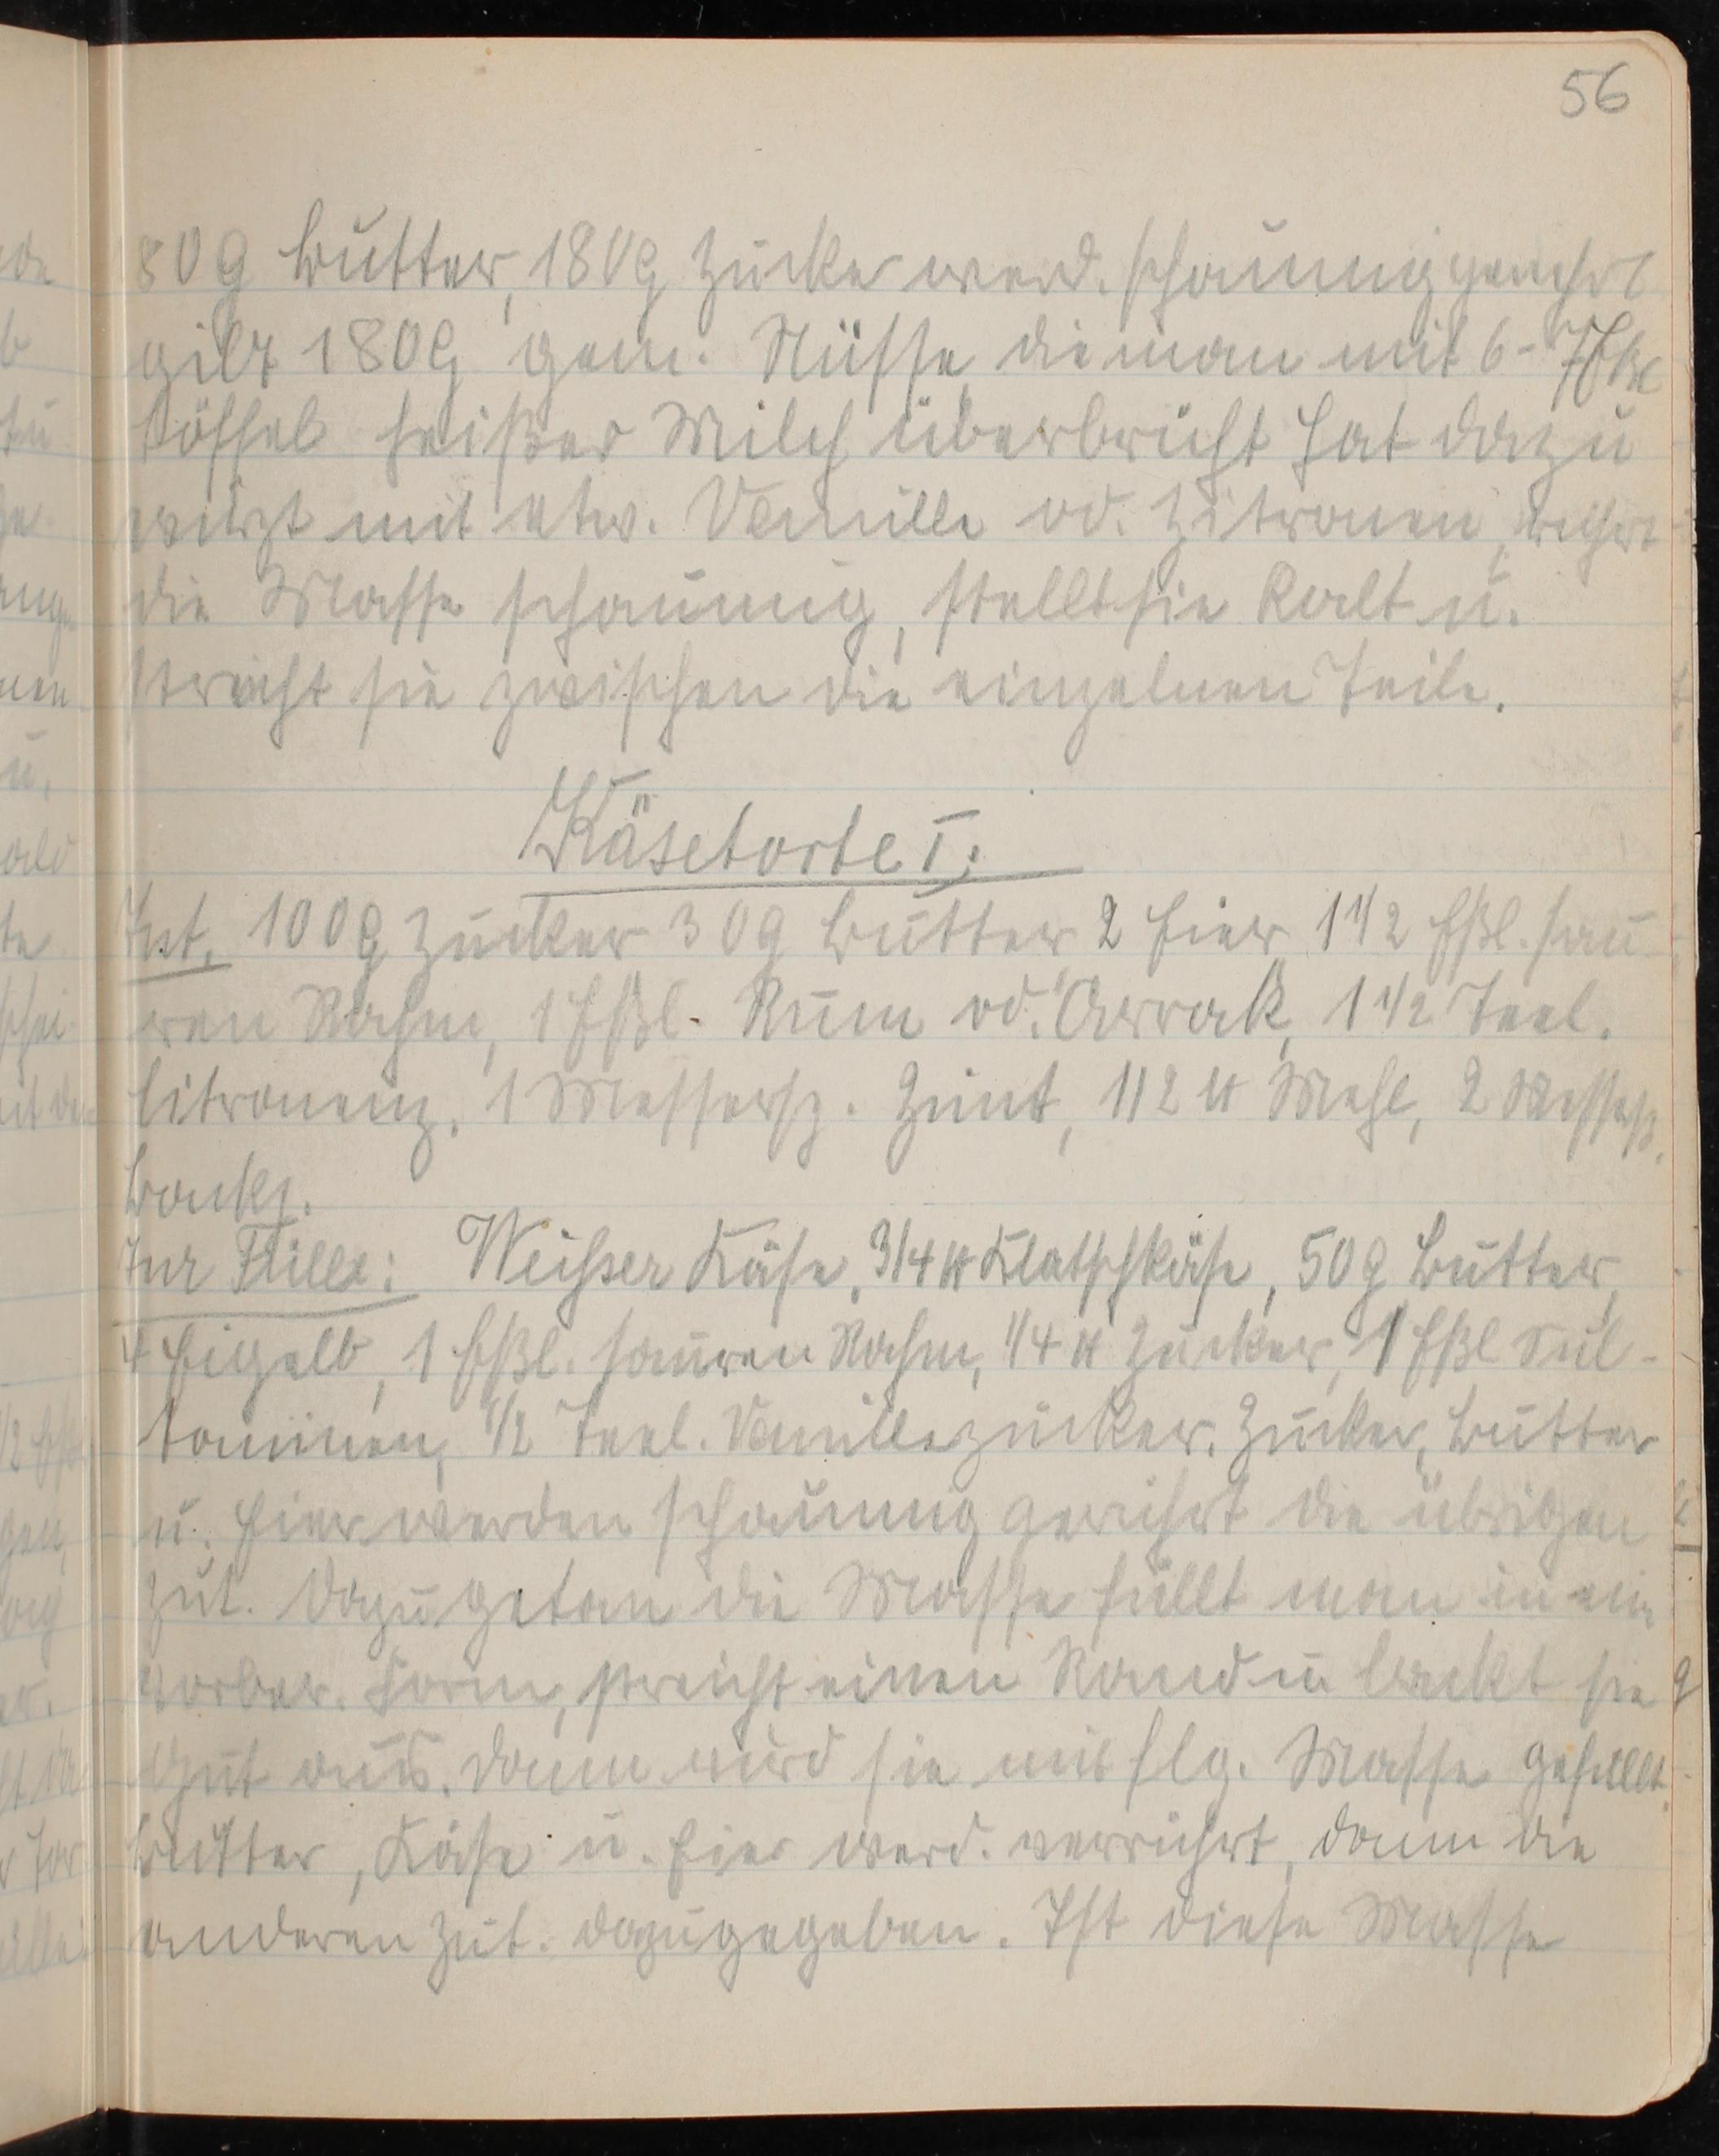 56
80g Butter, 180g Zucker werd. schaumig gerührt
gibt 180g gem. Nüsse, die man mit 6-7 Eß
löffel heißer Milch überbrüht hat dazu
würzt mit etw. Vanille od. Zitronen, rührt
die Masse schaumig, stellt sie kalt u.
streicht sie zwischen die einzelnen Teile.
Käsetorte I.
Zut. 100g Zucker 30g Butter 2 Eier, 1 1/2 Eßl. sau
ren Rahm, 1 Eßl. Rum od. Arrak, 1 1/2 Teel.
Citronenz. 1 Messersp. Zimt, 1/2 ℔ Mehl, 2 Messersp.
Backp.
Zur Fülle: Weisser Käse, 3/4 ℔ Klatschkäse, 50g Butter,
4 Eigelb, 1 Eßl. sauren Rahm, 1/4 ℔ Zucker, 1 Eßl Sul-
taninen, 1/2 Teel. Vanillezucker. Zucker, Butter
u. Eier werden schaumig gerührt die übrigen
Zut. dazugetan die Masse füllt man in ein
vorber. Form, streicht einen Rand u backt sie
gut aus. Dann wird sie mit flg. Masse gefüllt.
Butter, Käse u. Eier werd. verrührt, dann die
anderen Zut. dazugegeben. Ist diese Masse